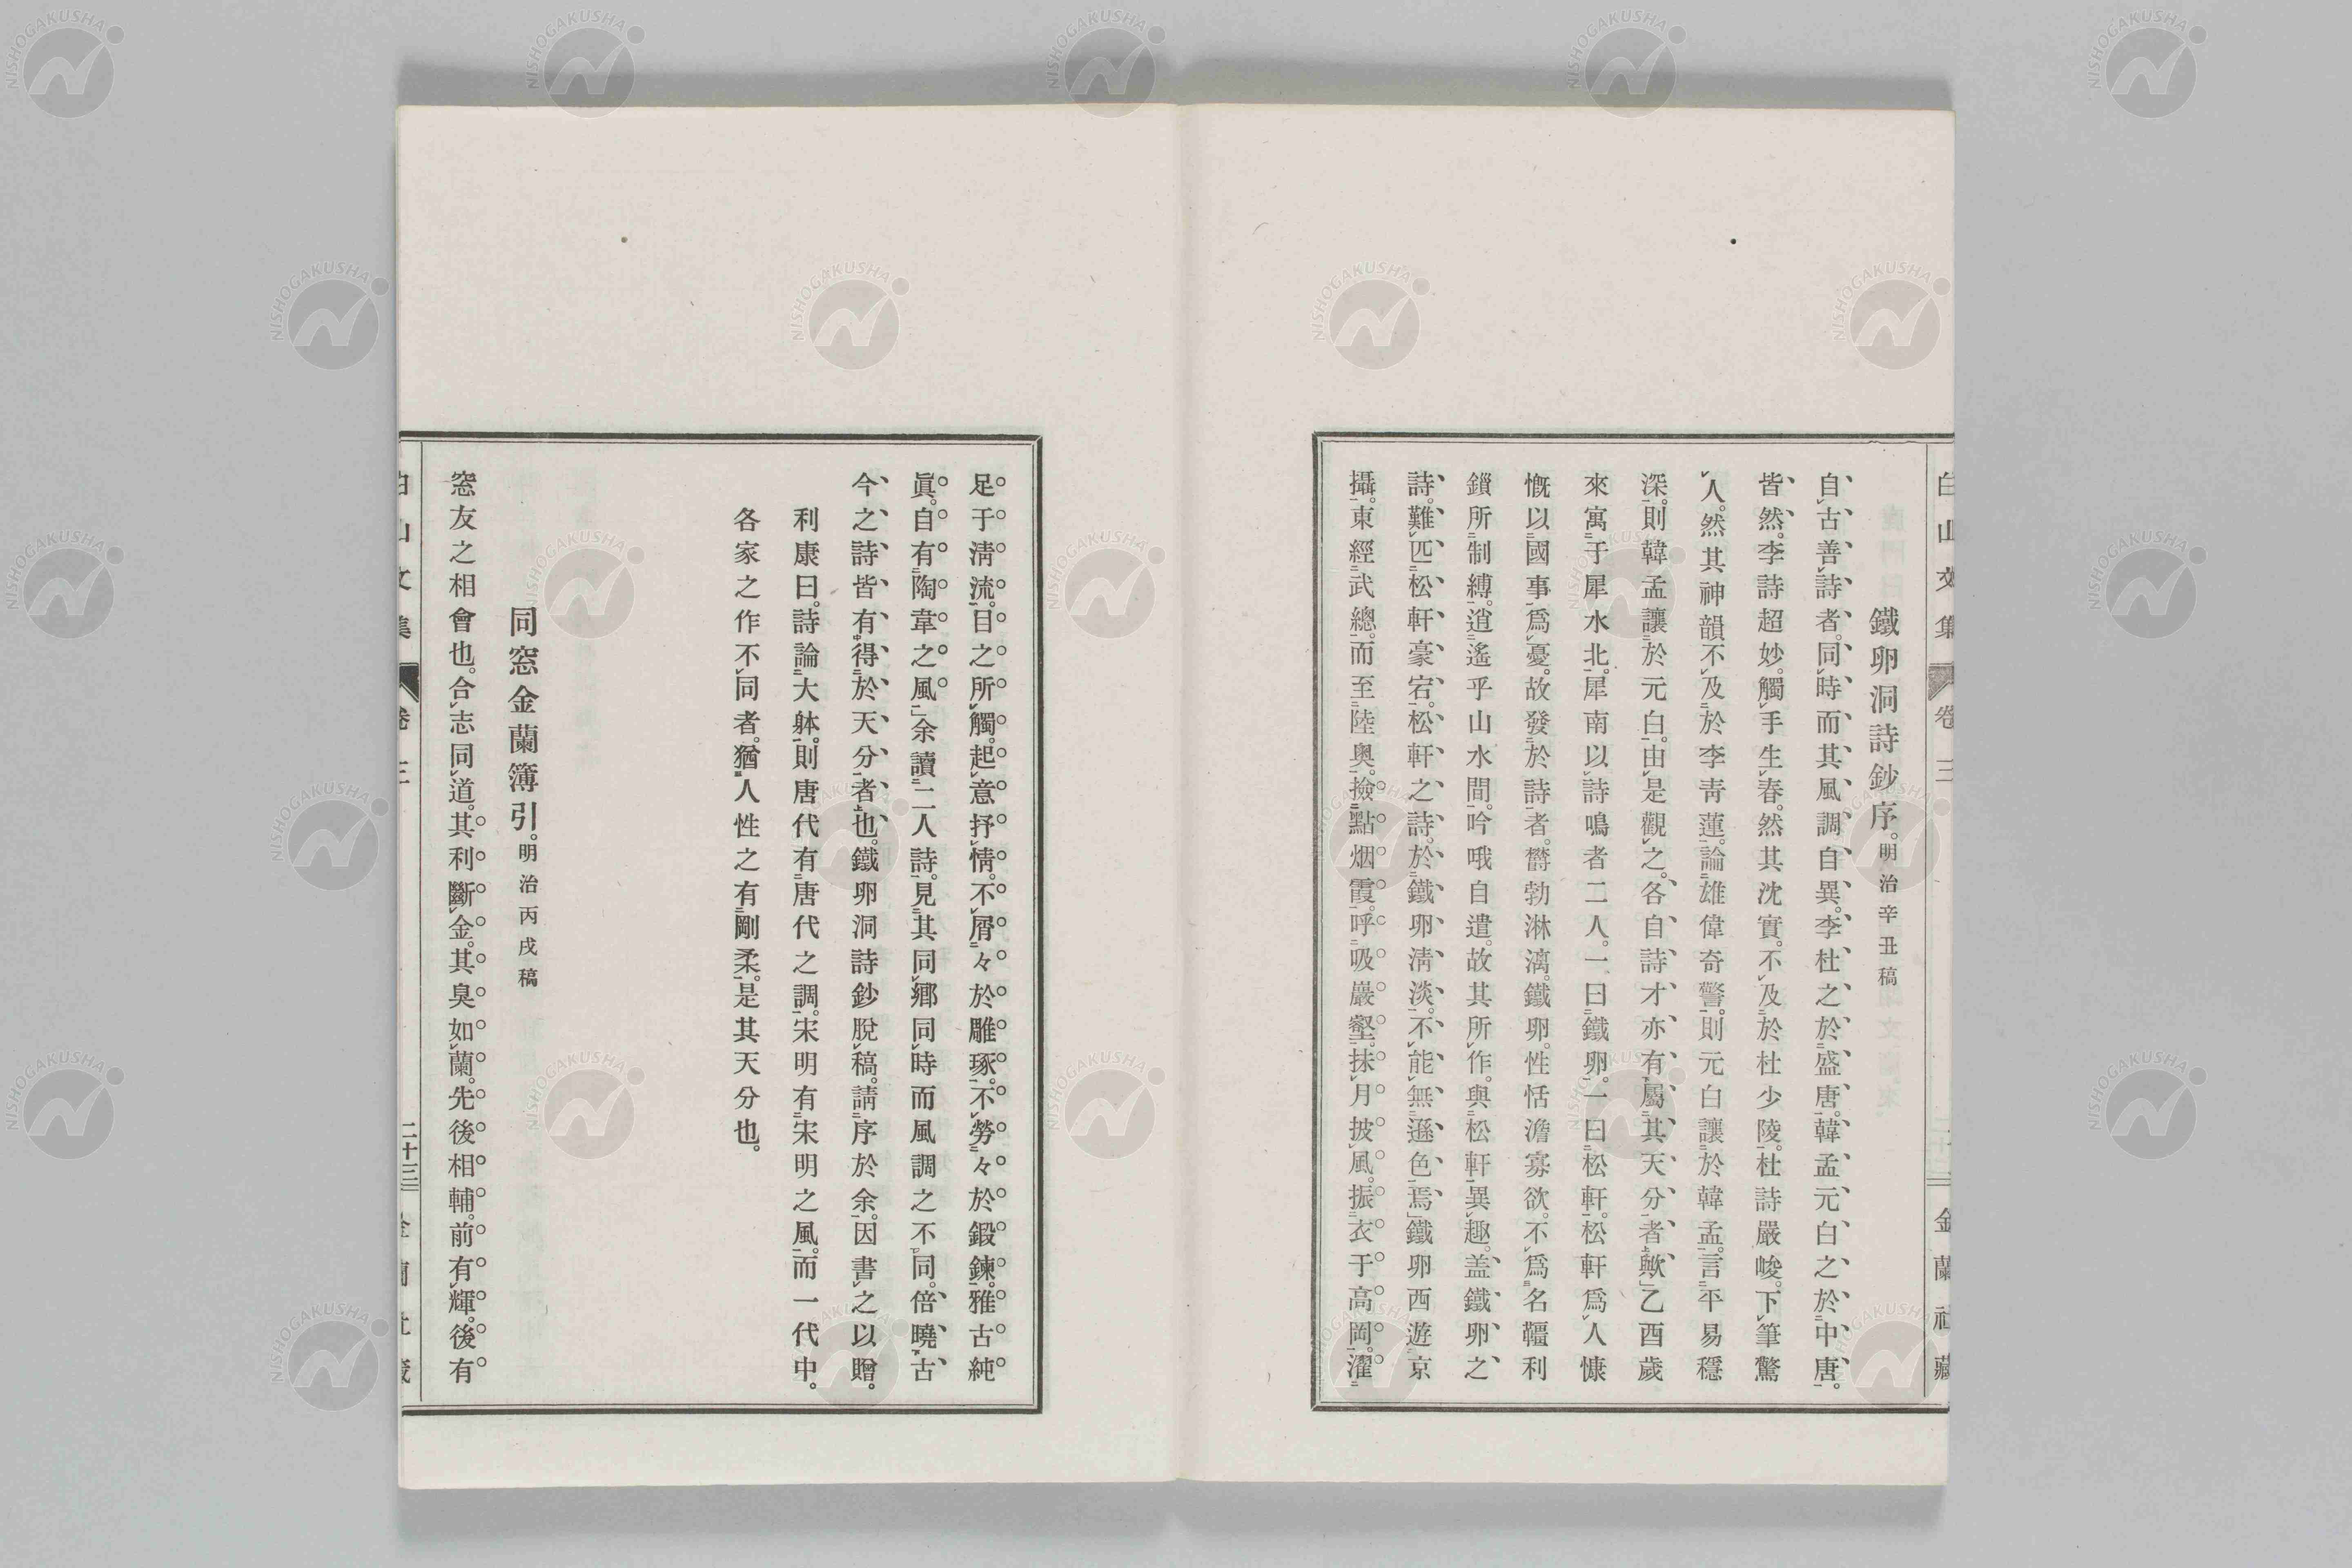 白山文集 卷三 二十三 金蘭社藏
鐵卵洞詩鈔序。明治辛丑稿
自古善詩者。同時而其風調自異。李杜之於盛唐。韓孟元白之於中唐。
皆然。李詩超妙。觸手生春。然其沈實。不及於杜少陵。杜詩嚴峻。下筆驚
人。然其神韻不及於李靑蓮。論雄偉奇警。則元白讓於韓孟。言平易穩
深。則韓孟讓於元白。由是觀之。各自詩才亦有屬其天分者歟」乙酉歲
來寓于犀水北。犀南以詩鳴者二人。一曰鐵卵。一曰松軒。松軒爲人慷
慨以國事爲憂。故發於詩者。欝勃淋漓。鐵卵。性恬澹寡欲。不爲名韁利
鎖所制縛。逍遙乎山水間。吟哦自遣。故其所作。與松軒異趣。盖鐵卵之
詩。難匹松軒豪宕。松軒之詩。於鐵卵淸淡。不能無遜色焉」鐵卵西遊京
攝。東經武總。而至陸奥。撿點烟霞。呼吸巖壑。抹月披風。振衣于高岡。濯
足于淸流。目之所觸。起意抒情。不屑々於雕琢。不勞々於鍛鍊。雅古純
眞。自有陶韋之風」余讀二人詩。見其同鄕同時而風調之不同。倍曉古
今之詩皆有得於天分者也。鐵卵洞詩鈔脫稿。請序於余。因書之以贈。
利康曰。詩論大躰。則唐代有唐代之調。宋明有宋明之風。而一代中。
各家之作不同者。猶人性之有剛柔。是其天分也。
同窓金蘭簿引。明治丙戌稿
窓友之相會也。合志同道。其利斷金。其臭如蘭。先後相輔。前有輝。後有
白山文集 卷三 二十三 金蘭社藏